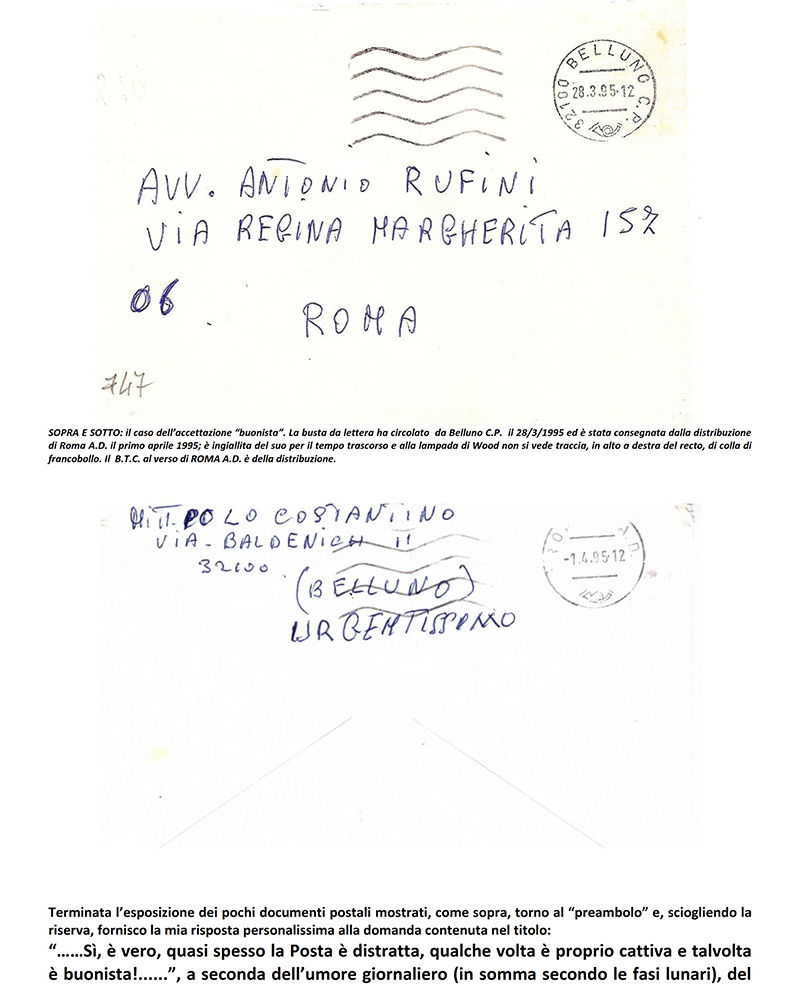 BELLUNO C.P.
28.3.95-12
32100
AVV. ANTONIO RUFINI
VIA REGINA MARGHERITA 157
06
ROMA
747
SOPRA E SOTTO: il caso dell’accettazione “buonista”. La busta da lettera ha circolato da Belluno C.P. il 28/3/1995 ed è stata consegnata dalla distribuzione
di Roma A.D. il primo aprile 1995; è ingiallita del suo per il tempo trascorso e alla lampada di Wood non si vede traccia, in alto a destra del recto, di colla di
francobollo. Il B.T.C. al verso di ROMA A.D. è della distribuzione.
MITT. POLO COSTANTINO
VIA - BALDENICH 11
32100
(BELLUNO)
URGENTISSIMO
-1.4.95-12
Terminata l’esposizione dei pochi documenti postali mostrati, come sopra, torno al “preambolo” e, sciogliendo la
riserva, fornisco la mia risposta personalissima alla domanda contenuta nel titolo:
“……Sì, è vero, quasi spesso la Posta è distratta, qualche volta è proprio cattiva e talvolta
è buonista!......”, a seconda dell’umore giornaliero (in somma secondo le fasi lunari), del